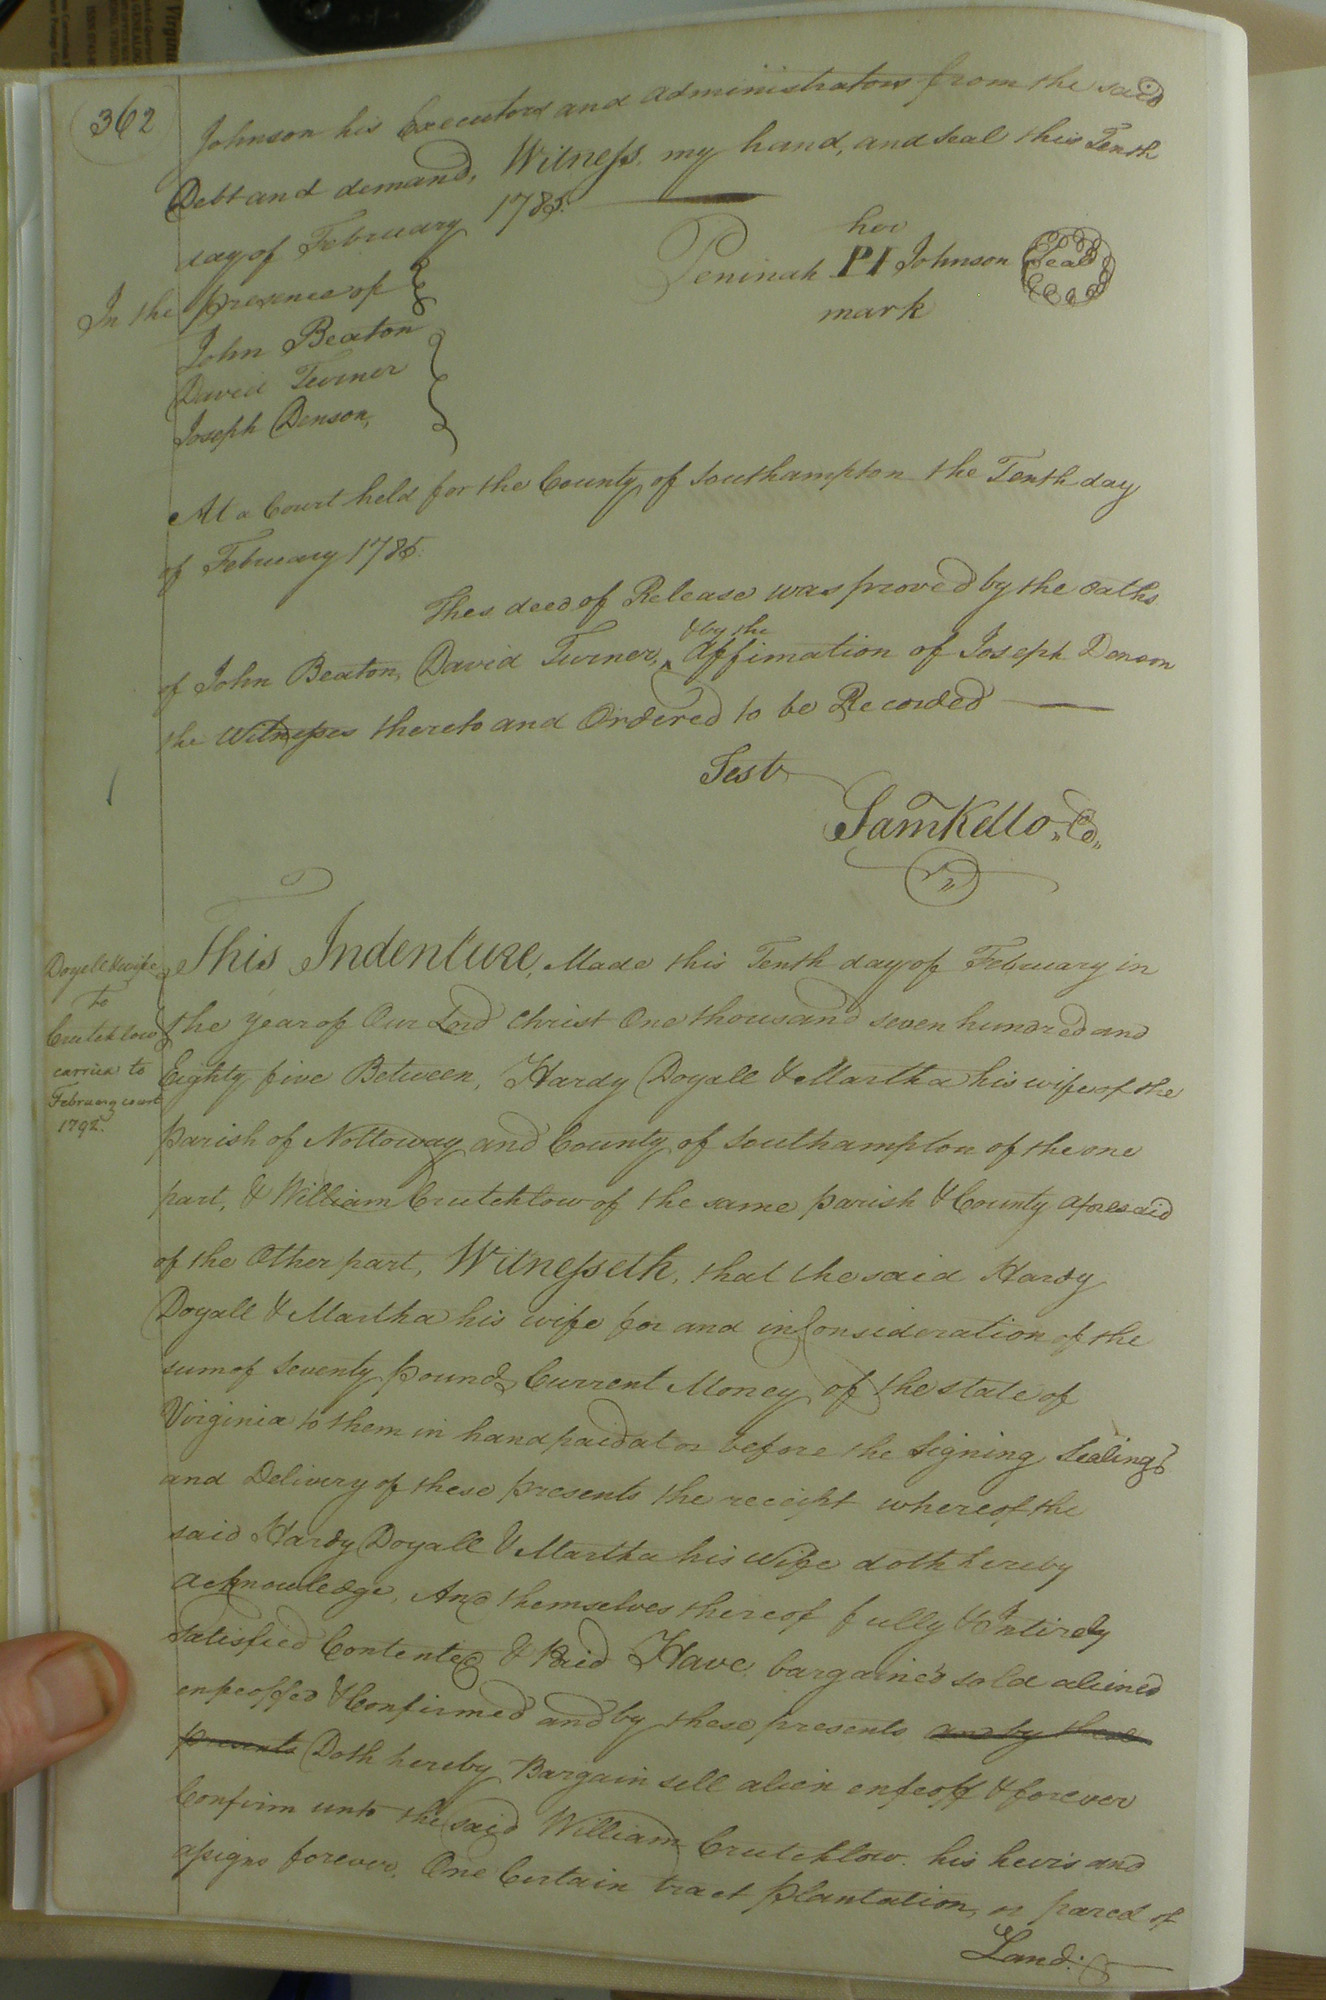 362
Johnson his Executors and administrators from the said
Debt and demand, Witness my hand, and seal this Tenth
day of February 1785.
her
Peninah PI Johnson Seal
mark
In the presence of
John Beaton
David Turner
Joseph Denson,
At a Court held for the County of Southampton the Tenth day
of February 1785.
Thes deed of Release was proved by the oaths
& by the
of John Beaton, David Turner, ^ Affimation of Joseph Denson
the Witnesses thereto and Ordered to be Recorded
Test
Sam Kello
Doyell & wife
to
Crutchlow
carried to
February court
1792.
This Indenture, Made this Tenth day of February in
the year of Our Lord Christ One thousand seven hundred and
Eighty five Between, Hardy Doyall & Martha his wife of the
parish of Nottoway and County of Southampton of the one
part, & William Crutchlow of the same parish & County aforesaid
of the Other part, Witnesseth, that the said Hardy
Doyall & Martha his wife for and in Consideration of the
sum of Seventy pounds Current Money of the state of
Virginia to them in hand paid at or before the Signing Sealing
and Delivery of these presents the receipt whereof the
said Hardy Doyall & Martha his wife doth hereby
acknowledge, And themselves thereof fully & Intirely
Satisfied Contented & Paid Have bargained sold aliened
enfeoffed & Confirmed and by these presents and by these
presents Doth hereby Bargain sell alien enfeoff & forever
Confirm unto the said William Crutchlow his heirs and
assigns forever, One Certain tract plantation, or parcel of
Land: